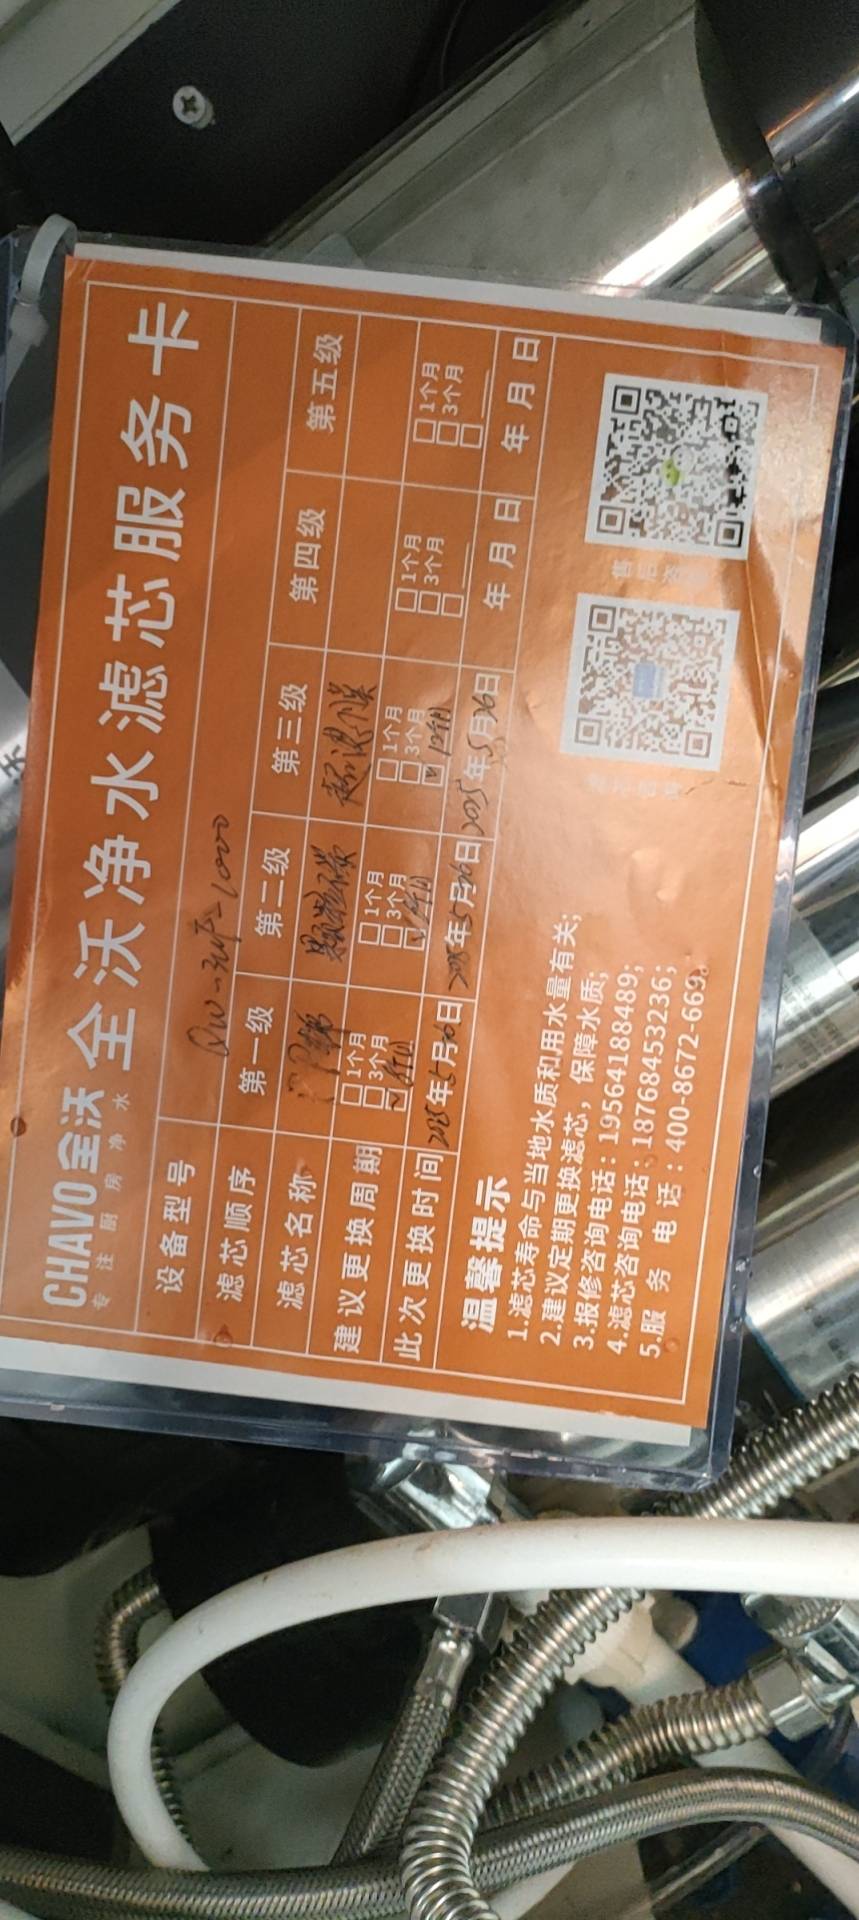 CHAVO全沃
专注厨房净水
全沃净水滤芯服务卡
设备型号
滤芯顺序 第一级 第二级 第三级 第四级 第五级
滤芯名称 颗粒碳 超滤膜
建议更换周期 □1个月 □3个月 □1个月 □3个月 □1个月 □3个月 □1个月 □3个月 □ □1个月 □3个月 □
此次更换时间 2025年5月26日 2025年5月26日 2025年5月26日 年 月 日 年 月 日
温馨提示
1.滤芯寿命与当地水质和用水量有关;
2.建议定期更换滤芯，保障水质;
3.报修咨询电话:19564188489;
4.滤芯咨询电话:18768453236;
5.服务电话:400-8672-669